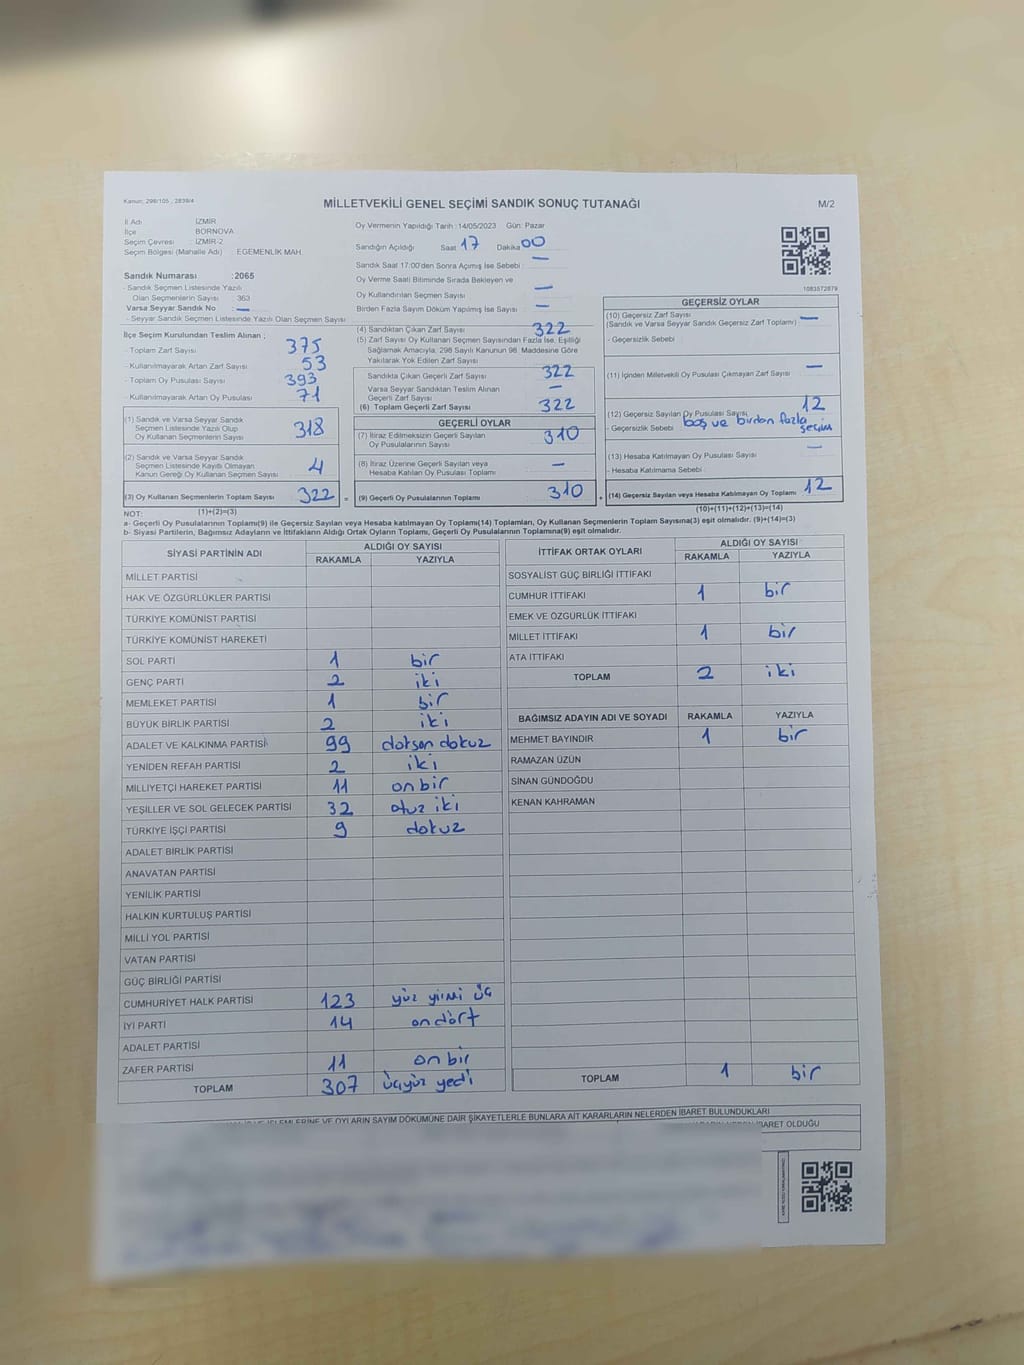 Kanun: 298/105 , 2839/4
MİLLETVEKİLİ GENEL SEÇİMİ SANDIK SONUÇ TUTANAĞI
M/2
İl Adı : İZMİR
İlçe : BORNOVA
Seçim Çevresi : İZMİR-2
Seçim Bölgesi (Mahalle Adı) : EGEMENLİK MAH.
Oy Vermenin Yapıldığı Tarih : 14/05/2023 Gün: Pazar
Sandığın Açıldığı Saat 17 Dakika 00
Sandık Saat 17:00'den Sonra Açımış İse Sebebi : —
Oy Verme Saati Bitiminde Sırada Bekleyen ve
Oy Kullandırılan Seçmen Sayısı —
Birden Fazla Sayım Döküm Yapılmış İse Sayısı —
1083572879
Sandık Numarası : 2065
- Sandık Seçmen Listesinde Yazılı
Olan Seçmenlerin Sayısı : 363
Varsa Seyyar Sandık No : —
- Seyyar Sandık Seçmen Listesinde Yazılı Olan Seçmen Sayısı :
İlçe Seçim Kurulundan Teslim Alınan ;
- Toplam Zarf Sayısı 375
- Kullanılmayarak Artan Zarf Sayısı 53
- Toplam Oy Pusulası Sayısı 393
- Kullanılmayarak Artan Oy Pusulası 71
(1) Sandık ve Varsa Seyyar Sandık
Seçmen Listesinde Yazılı Olup
Oy Kullanan Seçmenlerin Sayısı 318
(2) Sandık ve Varsa Seyyar Sandık
Seçmen Listesinde Kayıtlı Olmayan
Kanun Gereği Oy Kullanan Seçmen Sayısı 4
(3) Oy Kullanan Seçmenlerin Toplam Sayısı 322 =
(1)+(2)=(3)
(4) Sandıktan Çıkan Zarf Sayısı 322
(5) Zarf Sayısı Oy Kullanan Seçmen Sayısından Fazla İse, Eşitliği
Sağlamak Amacıyla, 298 Sayılı Kanunun 98. Maddesine Göre
Yakılarak Yok Edilen Zarf Sayısı
Sandıkta Çıkan Geçerli Zarf Sayısı 322
Varsa Seyyar Sandıktan Teslim Alınan
Geçerli Zarf Sayısı —
(6) Toplam Geçerli Zarf Sayısı 322
GEÇERLİ OYLAR
(7) İtiraz Edilmeksizin Geçerli Sayılan
Oy Pusulalarının Sayısı 310
(8) İtiraz Üzerine Geçerli Sayılan veya
Hesaba Katılan Oy Pusulası Toplamı —
(9) Geçerli Oy Pusulalarının Toplamı 310 +
GEÇERSİZ OYLAR
(10) Geçersiz Zarf Sayısı
(Sandık ve Varsa Seyyar Sandık Geçersiz Zarf Toplamı) —
- Geçersizlik Sebebi
(11) İçinden Milletvekili Oy Pusulası Çıkmayan Zarf Sayısı —
(12) Geçersiz Sayılan Oy Pusulası Sayısı 12
- Geçersizlik Sebebi boş ve birden fazla
seçim
(13) Hesaba Katılmayan Oy Pusulası Sayısı —
- Hesaba Katılmama Sebebi :
(14) Geçersiz Sayılan veya Hesaba Katılmayan Oy Toplamı 12
(10)+(11)+(12)+(13)=(14)
NOT:
a- Geçerli Oy Pusulalarının Toplamı(9) ile Geçersiz Sayılan veya Hesaba katılmayan Oy Toplamı(14) Toplamları, Oy Kullanan Seçmenlerin Toplam Sayısına(3) eşit olmalıdır. (9)+(14)=(3)
b- Siyasi Partilerin, Bağımsız Adayların ve İttifakların Aldığı Ortak Oyların Toplamı, Geçerli Oy Pusulalarının Toplamına(9) eşit olmalıdır.
SİYASİ PARTİNİN ADI ALDIĞI OY SAYISI
RAKAMLA YAZIYLA
MİLLET PARTİSİ
HAK VE ÖZGÜRLÜKLER PARTİSİ
TÜRKİYE KOMÜNİST PARTİSİ
TÜRKİYE KOMÜNİST HAREKETİ
SOL PARTİ 1 bir
GENÇ PARTİ 2 iki
MEMLEKET PARTİSİ 1 bir
BÜYÜK BİRLİK PARTİSİ 2 iki
ADALET VE KALKINMA PARTİSİ 99 doksan dokuz
YENİDEN REFAH PARTİSİ 2 iki
MİLLİYETÇİ HAREKET PARTİSİ 11 on bir
YEŞİLLER VE SOL GELECEK PARTİSİ 32 otuz iki
TÜRKİYE İŞÇİ PARTİSİ 9 dokuz
ADALET BİRLİK PARTİSİ
ANAVATAN PARTİSİ
YENİLİK PARTİSİ
HALKIN KURTULUŞ PARTİSİ
MİLLİ YOL PARTİSİ
VATAN PARTİSİ
GÜÇ BİRLİĞİ PARTİSİ
CUMHURİYET HALK PARTİSİ 123 yüz yirmi üç
İYİ PARTİ 14 on dört
ADALET PARTİSİ
ZAFER PARTİSİ 11 on bir
TOPLAM 307 üçyüz yedi
İTTİFAK ORTAK OYLARI ALDIĞI OY SAYISI
RAKAMLA YAZIYLA
SOSYALİST GÜÇ BİRLİĞİ İTTİFAKI
CUMHUR İTTİFAKI 1 bir
EMEK VE ÖZGÜRLÜK İTTİFAKI
MİLLET İTTİFAKI 1 bir
ATA İTTİFAKI
TOPLAM 2 iki
BAĞIMSIZ ADAYIN ADI VE SOYADI RAKAMLA YAZIYLA
MEHMET BAYINDIR 1 bir
RAMAZAN ÜZÜN
SİNAN GÜNDOĞDU
KENAN KAHRAMAN
TOPLAM 1 bir
İŞLEMLERİNE VE OYLARIN SAYIM DÖKÜMÜNE DAİR ŞİKAYETLERLE BUNLARA AİT KARARLARIN NELERDEN İBARET BULUNDUKLARI
İBARET OLDUĞU